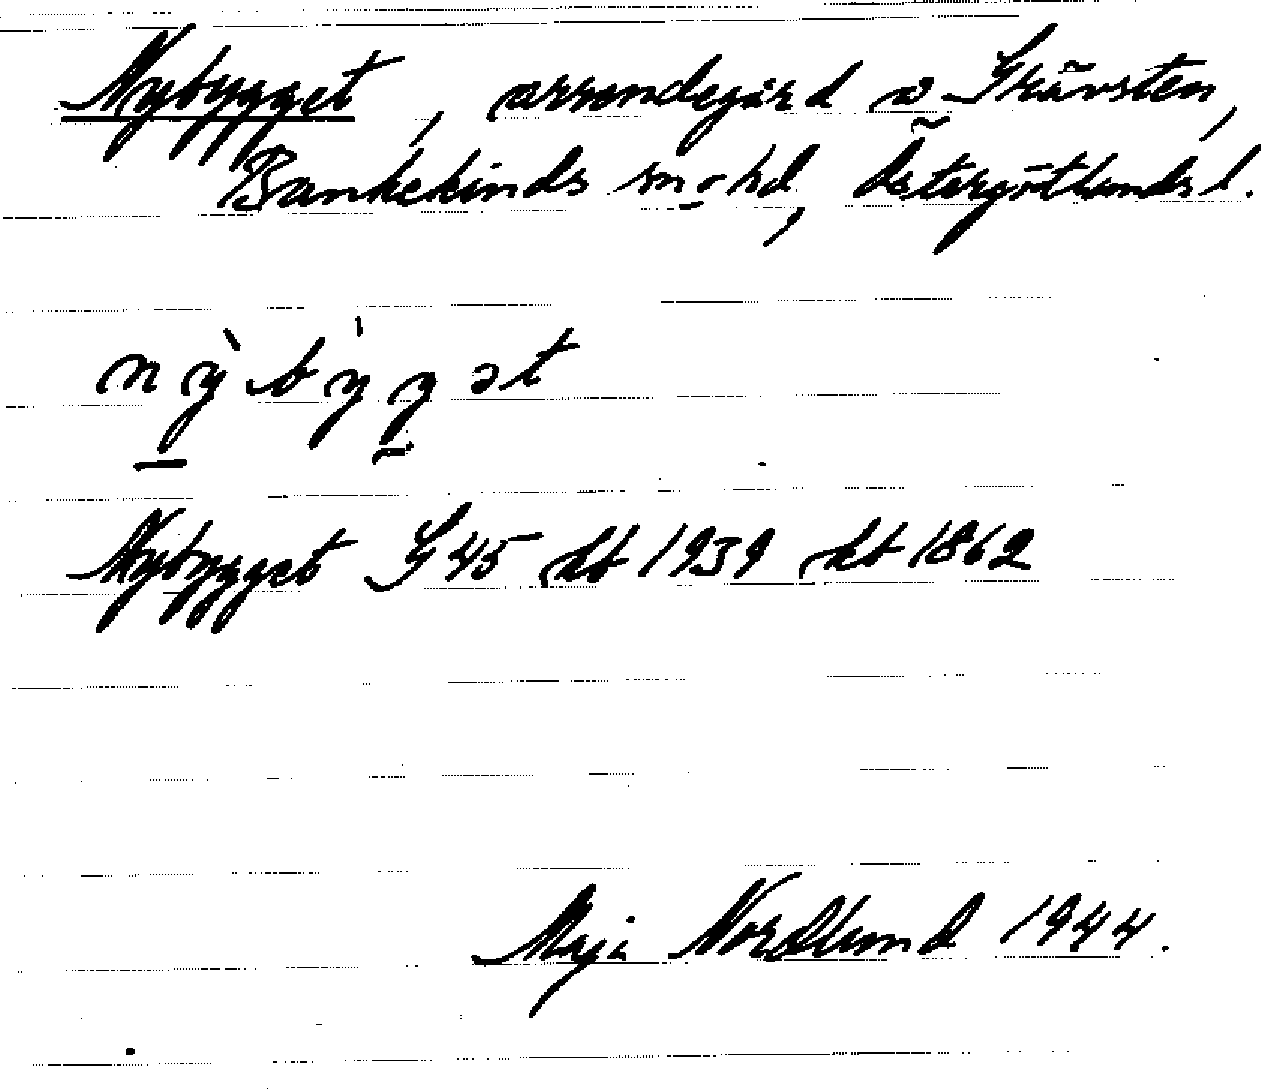 Nybygget, arrendegård u Grävsten,
Bankekinds sn o hd, Östergötlands l.
nỳbỳgət
Nybygget G 45 db 1939 kb 1862
Maja Nordlund 1944.